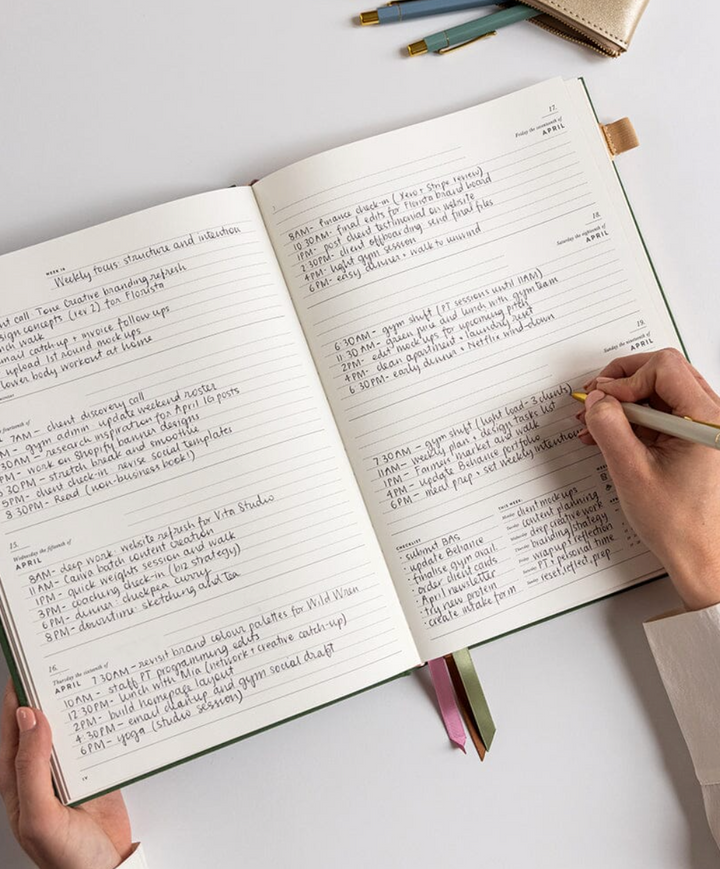 WEEK 16
Weekly focus: structure and intention
call Tone Creative branding refresh
design concepts (rev 2) for Florista
and walk
email catch up + invoice follow ups
upload 1st round mock ups
lower body workout at home
7AM- client discovery call
gym admin. update weekend roster
research inspiration for April IG posts
PM- work on Shopify banner designs
30PM- stretch break and smoothie
5PM- client check-in. revise social templates
8 30PM- Read (non-business book!)
15.
Wednesday the fifteenth of
APRIL
8AM- deep work. website refresh for Vita Studio
11AM- Canva batch content creation
1PM- quick weights session and walk
3PM- coaching check-in (biz strategy)
6PM- dinner: chickpea curry
8PM- downtime: sketching and tea
16.
Thursday the sixteenth of
APRIL 7 30AM- revisit brand colour palettes for Wild Wren
10AM- staff PT programming edits
12 30PM- lunch with Mia (network + creative catch-up)
2PM- build homepage layout
4 30PM- email clean-up and gym social draft
6PM- yoga (studio session)
17.
Friday the seventeenth of
APRIL
8AM- finance check-in (Xero + Stripe review)
10 30AM- final edits for Florista brand board
1PM- post client testimonial on website
2:30PM- client offboarding. send final files
4PM- light gym session
6PM- easy dinner + walk to unwind
18.
Saturday the eighteenth of
APRIL
6 30AM- gym shift (PT sessions until 11AM)
11 30AM- green juice and lunch with gym team
2PM- edit mock ups for upcoming pitch
4PM- clean apartment + laundry reset
6 30PM- early dinner + Netflix wind-down
19.
Sunday the nineteenth of
APRIL
7 30AM- gym shift (light load- 3 clients)
11AM- weekly plan + design tasks list
1PM- Farmers market and walk
4PM- update Behance portfolio
6PM- meal prep + set weekly intention
CHECKLIST
· submit BAS
· update Behance
· finalise gym avail.
· order client cards
· April newsletter
· try new protein
· create intake form
THIS WEEK
Monday client mock ups
Tuesday content planning
Wednesday deep creative work
Thursday branding/strategy
Friday wrap up + reflection
Saturday PT + personal time
Sunday reset, reflect, prep